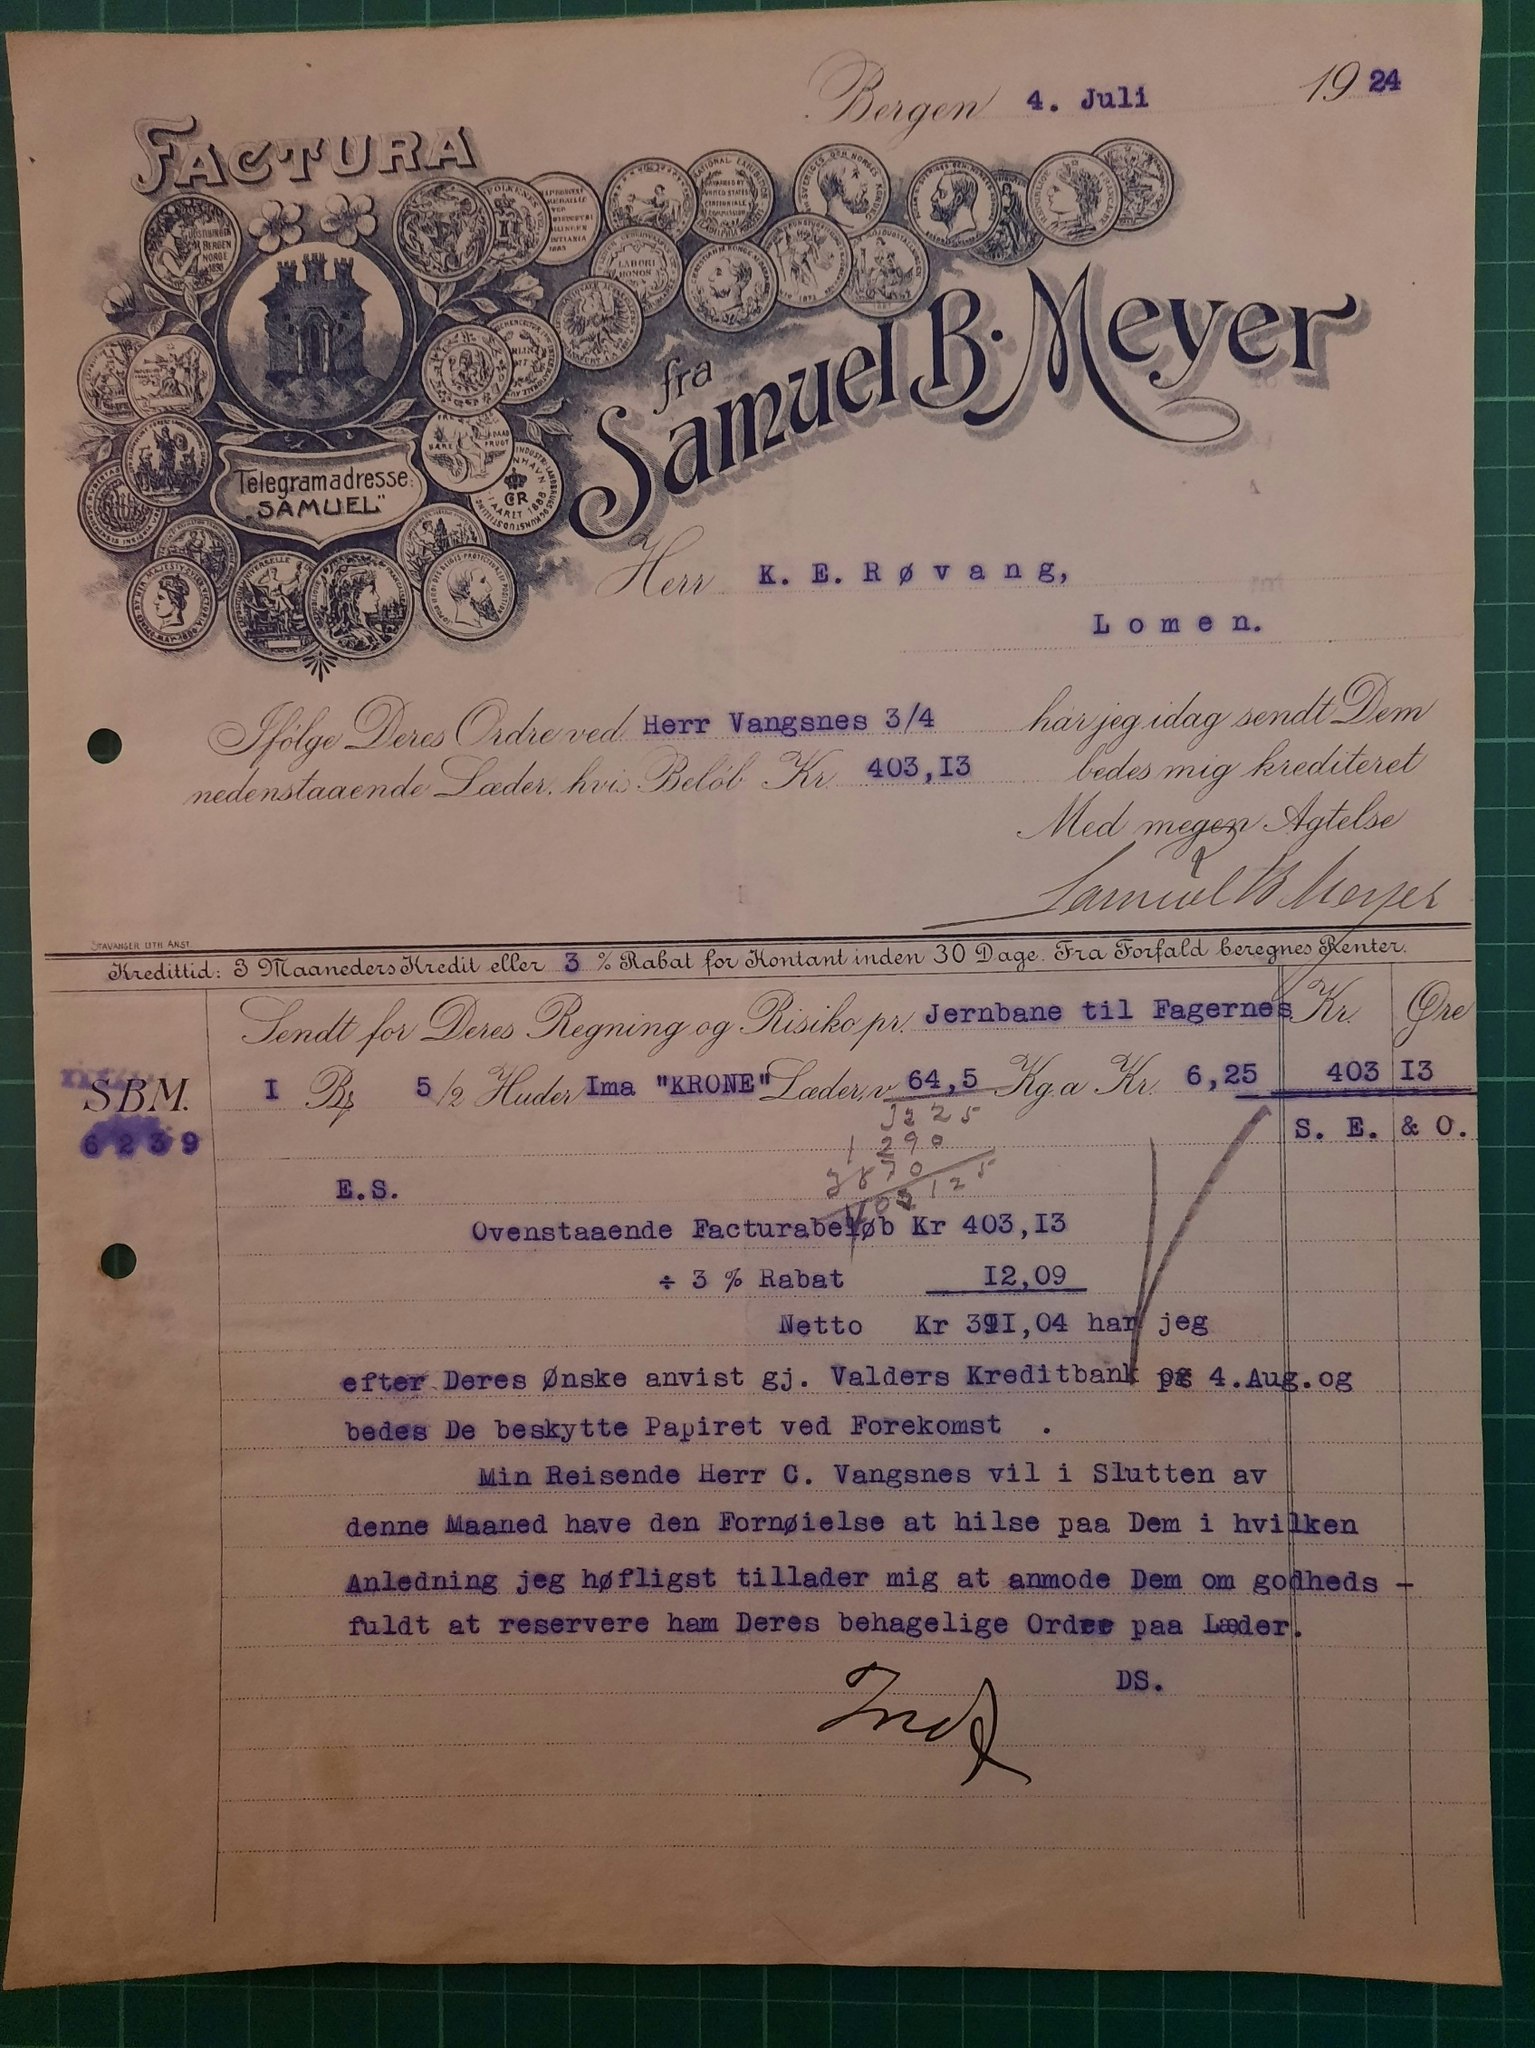 Bergen 4. Juli 1924
FACTURA
fra
Samuel B. Meyer
Telegramadresse:
„SAMUEL"
Herr K. E. Røvang,
Lomen.
Ifølge Deres Ordre ved Herr Vangsnes 3/4 har jeg idag sendt Dem
nedenstaaende Læder, hvis Beløb Kr. 403,13 bedes mig krediteret
Med megen Agtelse
Samuel B Meyer
STAVANGER LITH. ANST.
Kredittid: 3 Maaneders Kredit eller 3 % Rabat for Kontant inden 30 Dage. Fra Forfald beregnes Renter.
Sendt for Deres Regning og Risiko pr. Jernbane til Fagernes Kr. Øre
SBM. I 5/2 Huder Ima "KRONE" Læder, v 64,5 Kg. a Kr. 6,25 403 13
6239 S. E. & O.
3225
1290
3870
403125
E.S.
Ovenstaaende Facturabeløb Kr 403,13
÷ 3 % Rabat 12,09
Netto Kr 391,04 har jeg
efter Deres Ønske anvist gj. Valders Kreditbank pr 4.Aug.og
bedes De beskytte Papiret ved Forekomst .
Min Reisende Herr C. Vangsnes vil i Slutten av
denne Maaned have den Fornøielse at hilse paa Dem i hvilken
Anledning jeg høfligst tillader mig at anmode Dem om godheds -
fuldt at reservere ham Deres behagelige Ordre paa Læder.
DS.